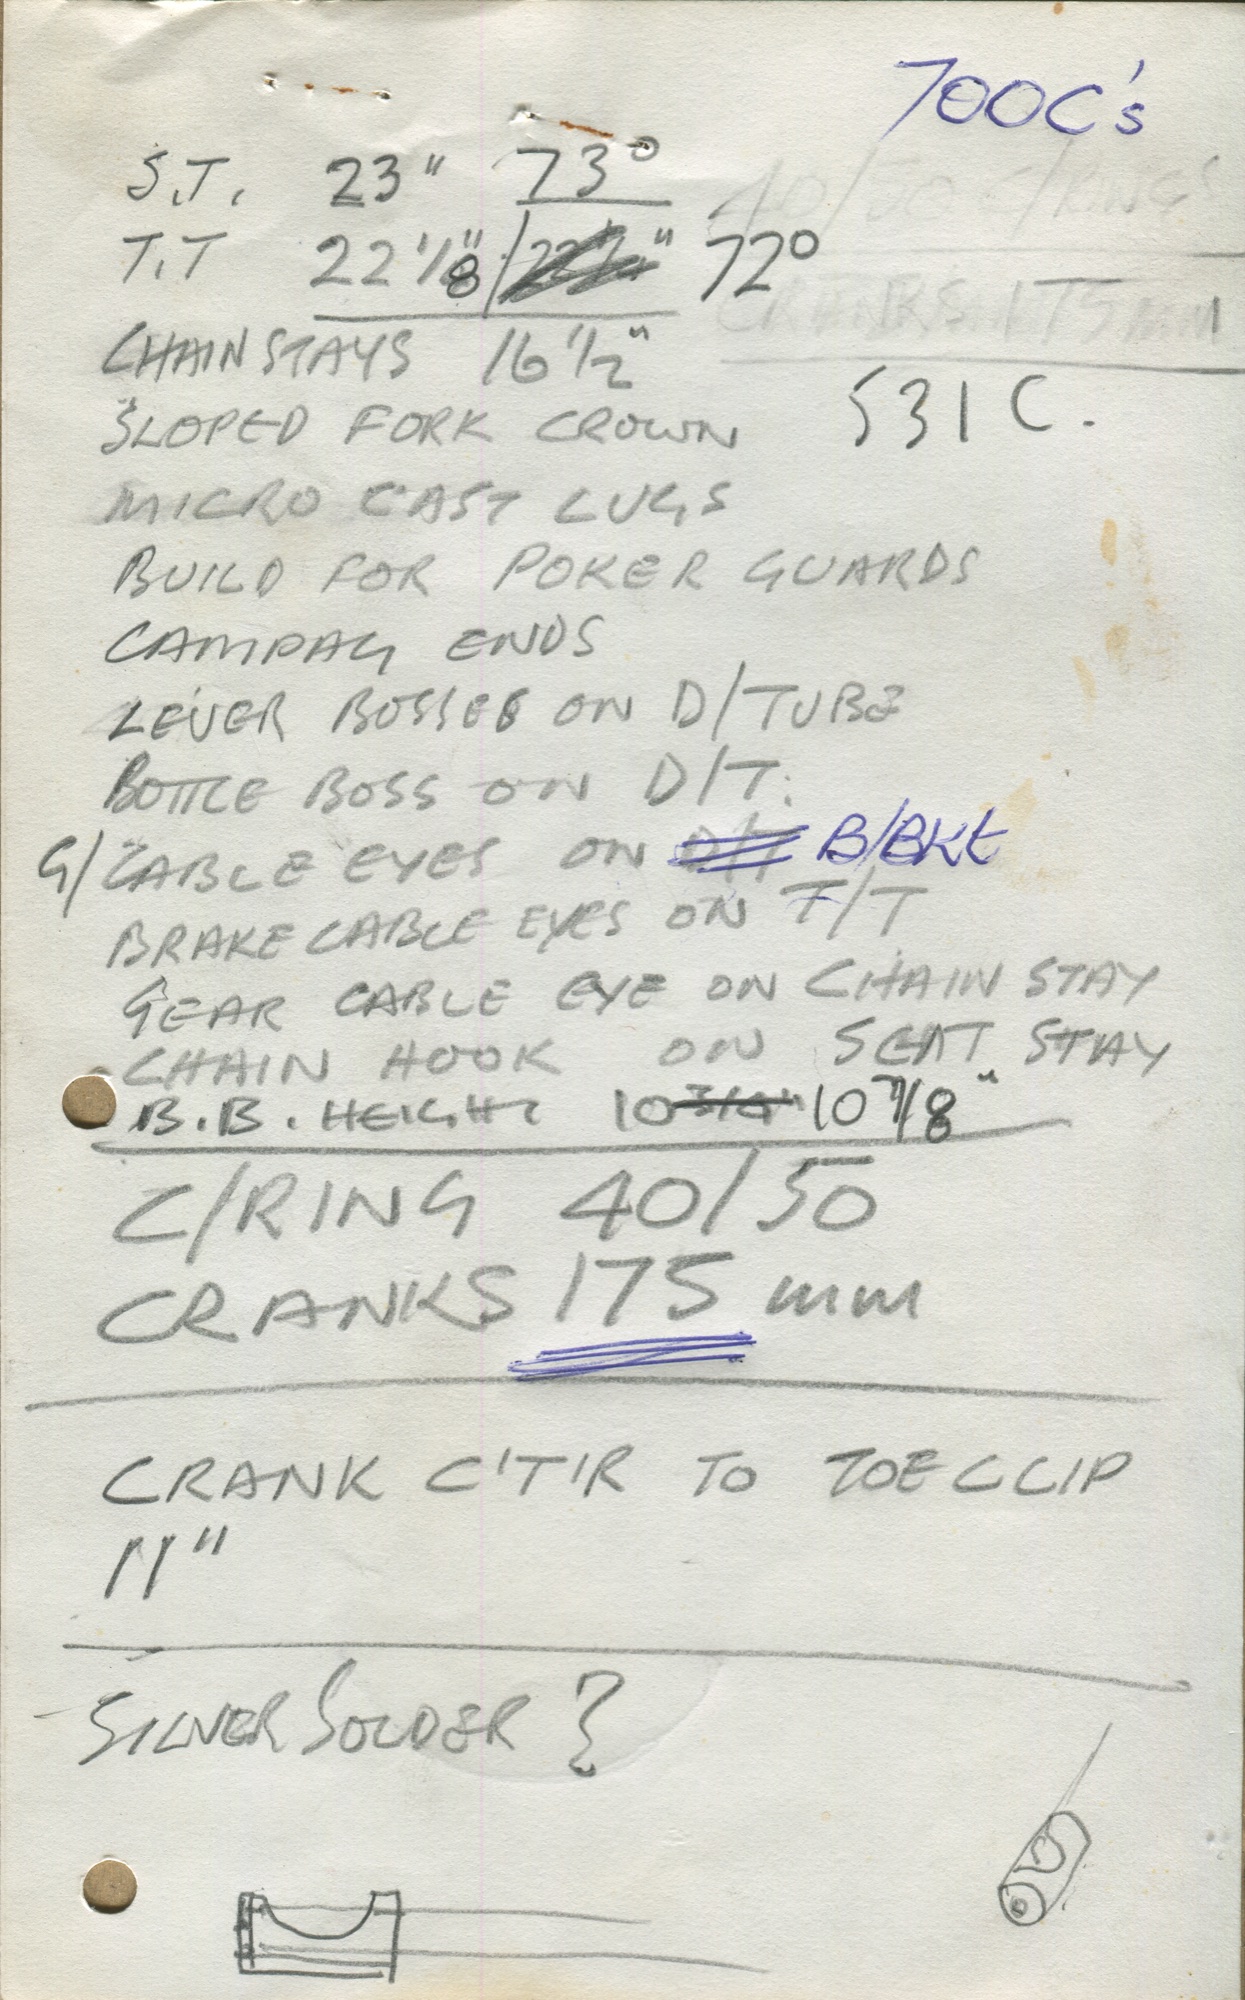 700C's
S.T. 23" 73°
40/50 C/RINGS
T.T 22 1/8" / " 72°
CRANKS 175mm
CHAINSTAYS 16 1/2"
531 C.
SLOPED FORK CROWN
MICRO CAST LUGS
BUILD FOR POKER GUARDS
CAMPAG ENDS
LEVER BOSSES ON D/TUBE
BOTTLE BOSS ON D/T.
G/CABLE EYES ON D/T B/BKt
BRAKE CABLE EYES ON T/T
GEAR CABLE EYE ON CHAIN STAY
CHAIN HOOK ON SEAT STAY
B.B. HEIGHT 10 3/4" 10 7/8"
C/RING 40/50
CRANKS 175 mm
CRANK C'T'R TO TOECLIP
11"
SILVER SOLDER ?